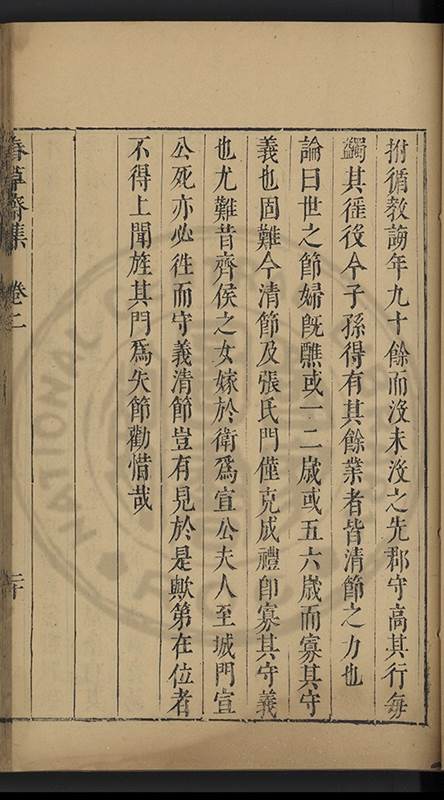 拊循教誨年九十餘而沒未沒之先郡守高其行每
蠲其徭役今子孫得有其餘業者皆清節之力也
論曰世之節婦旣醮或一二歲或五六歲而寡其守
義也固難今清節及張氏門僅克成禮卽寡其守義
也尤難昔齊侯之女嫁於衛爲宣公夫人至城門宣
公死亦必徃而守義清節豈有見於是歟第在位者
不得上聞旌其門爲失節勸惜哉
春草齋集 卷二 二十